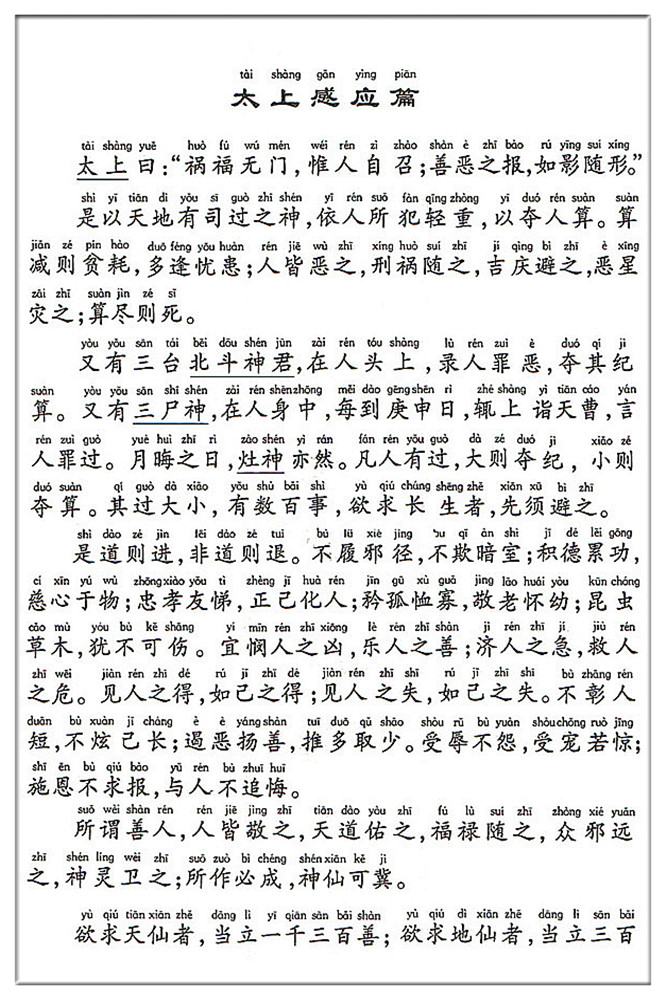 tài shàng gǎn yìng piān
太上感应篇
tài shàng yuē huò fú wú mén wéi rén zì zhào shàn è zhī bào rú yǐng suí xíng
太上曰：“祸福无门，惟人自召；善恶之报，如影随形。”
shì yǐ tiān dì yǒu sī guò zhī shén yī rén suǒ fàn qīng zhòng yǐ duó rén suàn suàn
是以天地有司过之神，依人所犯轻重，以夺人算。算
jiǎn zé pín hào duō féng yōu huàn rén jiē wù zhī xíng huò suí zhī jí qìng bì zhī è xīng
减则贫耗，多逢忧患；人皆恶之，刑祸随之，吉庆避之，恶星
zāi zhī suàn jìn zé sǐ
灾之；算尽则死。
yòu yǒu sān tái běi dǒu shén jūn zài rén tóu shàng lù rén zuì è duó qí jì
又有三台北斗神君，在人头上，录人罪恶，夺其纪
suàn yòu yǒu sān shī shén zài rén shēn zhōng měi dào gēng shēn rì zhé shàng yì tiān cáo yán
算。又有三尸神，在人身中，每到庚申日，辄上诣天曹，言
rén zuì guò yuè huì zhī rì zào shén yì rán fán rén yǒu guò dà zé duó jì xiǎo zé
人罪过。月晦之日，灶神亦然。凡人有过，大则夺纪，小则
duó suàn qí guò dà xiǎo yǒu shù bǎi shì yù qiú cháng shēng zhě xiān xū bì zhī
夺算。其过大小，有数百事，欲求长生者，先须避之。
shì dào zé jìn fēi dào zé tuì bù lǚ xié jìng bu qī àn shì jī dé lěi gōng
是道则进，非道则退。不履邪径，不欺暗室；积德累功，
cí xīn yú wù zhōng xiào yǒu tì zhèng jǐ huà rén jīn gū xù guǎ jìng lǎo huái yòu kūn chóng
慈心于物；忠孝友悌，正己化人；矜孤恤寡，敬老怀幼；昆虫
cǎo mù yóu bù kě shāng yí mǐn rén zhī xiōng lè rén zhī shàn jì rén zhī jí jiù rén
草木，犹不可伤。宜悯人之凶，乐人之善；济人之急，救人
zhī wēi jiàn rén zhī dé rú jǐ zhī dé jiàn rén zhī shī rú jǐ zhī shī bù zhāng rén
之危。见人之得，如己之得；见人之失，如己之失。不彰人
duǎn bù xuàn jǐ cháng è è yáng shàn tuī duō qǔ shǎo shòu rǔ bù yuàn shòu chǒng ruò jīng
短，不炫己长；遏恶扬善，推多取少。受辱不怨，受宠若惊；
shī ēn bù qiú bào yǔ rén bù zhuī huǐ
施恩不求报，与人不追悔。
suǒ wèi shàn rén rén jiē jìng zhī tiān dào yòu zhī fú lù suí zhī zhòng xié yuǎn
所谓善人，人皆敬之，天道佑之，福禄随之，众邪远
zhī shén líng wèi zhī suǒ zuò bì chéng shén xiān kě jì
之，神灵卫之；所作必成，神仙可冀。
yù qiú tiān xiān zhě dāng lì yī qiān sān bǎi shàn yù qiú dì xiān zhě dāng lì sān bǎi
欲求天仙者，当立一千三百善；欲求地仙者，当立三百